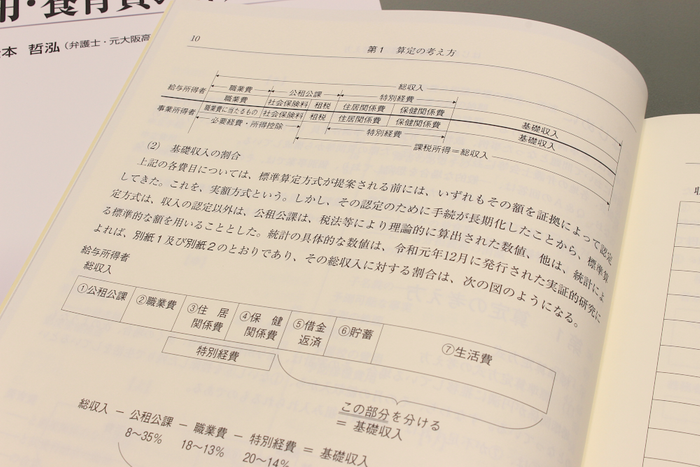 用・養育
本 哲泓(弁護士・元大阪高
10
第1 算定の考え方
総収入
給与所得者
職業費
公租公課
特別経費
職業費
社会保険料
租税
住居関係費
保健関係費
基礎収入
事業所得者
職業費に当たるもの
社会保険料
租税
住居関係費
保健関係費
基礎収入
必要経費・所得控除
特別経費
課税所得=総収入
(2) 基礎収入の割合
上記の各費目については、標準算定方式が提案される前には、いずれもその額を証拠によって認定
してきた。これを、実額方式という。しかし、その認定のために手続が長期化したことから、標準算
定方式は、収入の認定以外は、公租公課は、税法等により理論的に算出された数値、他は、統計によ
る標準的な額を用いることとした。統計の具体的な数値は、令和元年12月に発行された実証的研究に
よれば、別紙1及び別紙2のとおりであり、その総収入に対する割合は、次の図のようになる。
給与所得者
総収入
①公租公課
②職業費
③住 居
関係費
④保 健
関係費
⑤借金
返済
⑥貯蓄
⑦生活費
特別経費
この部分を分ける
=基礎収入
総収入 − 公租公課 − 職業費 − 特別経費 = 基礎収入
8~35% 18~13% 20~14%